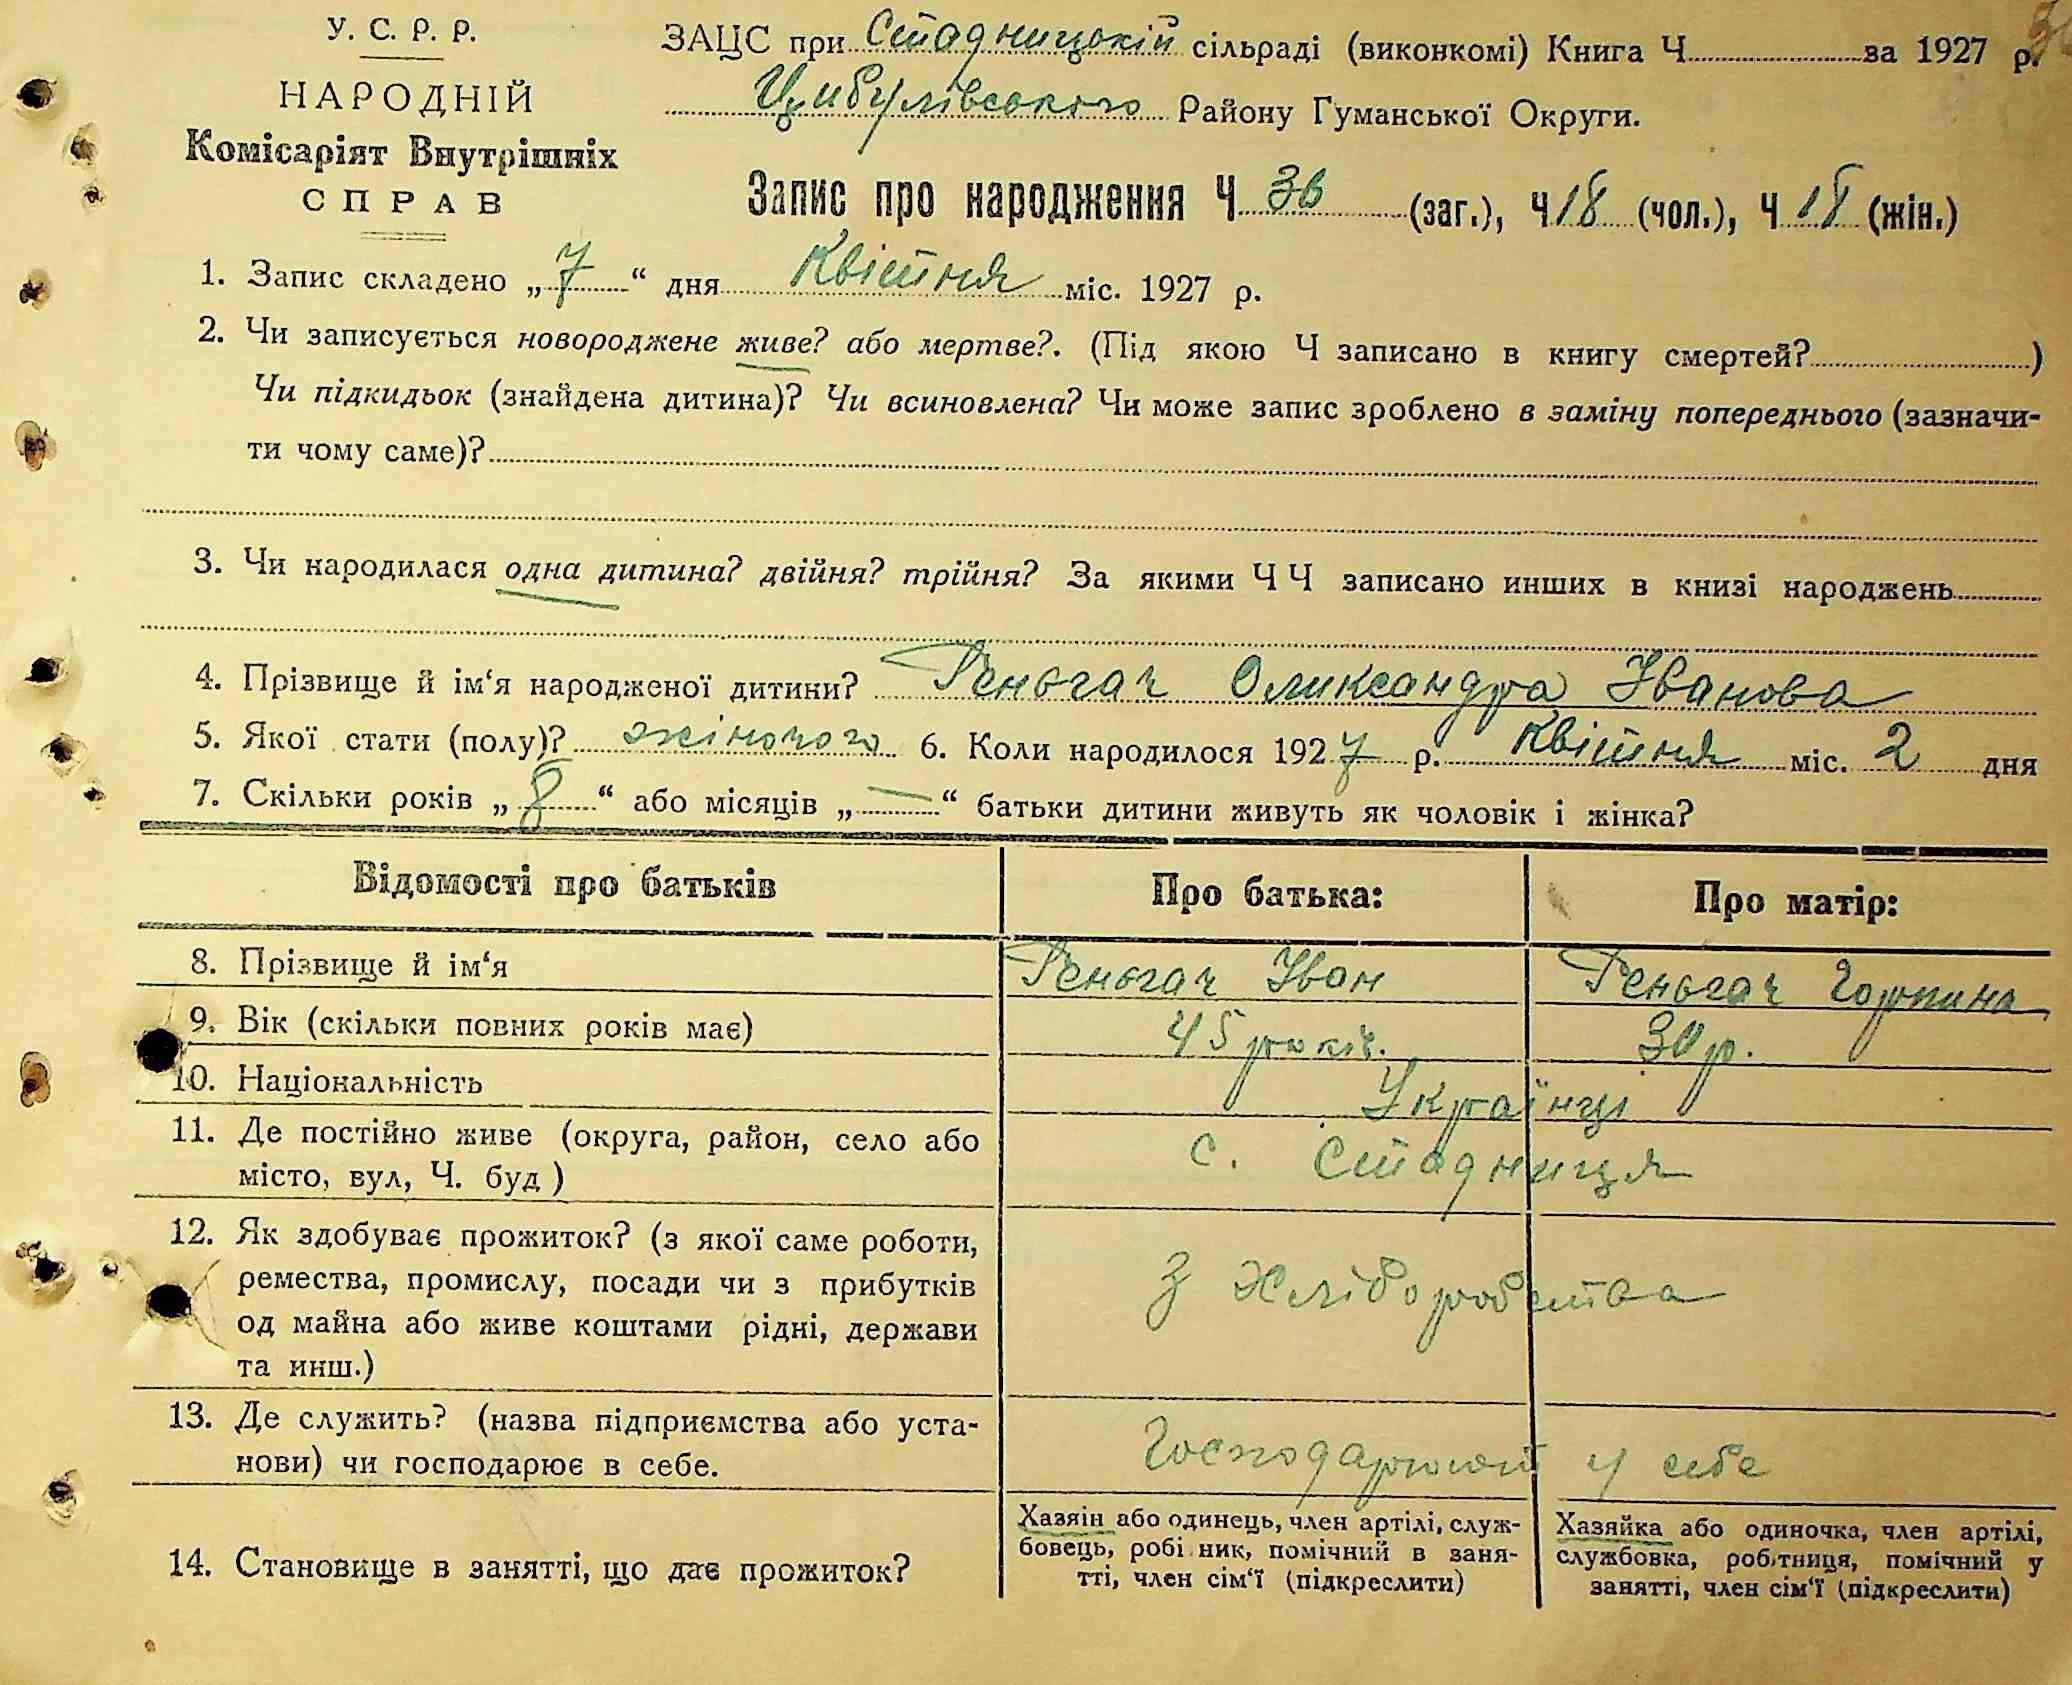 У. С. Р. Р.
НАРОДНІЙ
Комісаріят Внутрішніх
СПРАВ
ЗАЦС при Стадницькій сільраді (виконкомі) Книга Ч. за 1927 р.
Цибулівського Району Гуманської Округи.
Запис про народження Ч 36 (заг.), Ч 18 (чол.), Ч 18 (жін.)
1. Запис складено „7“ дня Квітня міс. 1927 р.
2. Чи записується новороджене живе? або мертве?. (Під якою Ч записано в книгу смертей? )
Чи підкидьок (знайдена дитина)? Чи всиновлена? Чи може запис зроблено в заміну попереднього (зазначи-
ти чому саме)?
3. Чи народилася одна дитина? двійня? трійня? За якими ЧЧ записано инших в книзі народжень
4. Прізвище й ім‘я народженої дитини? Геньгач Олександра Іванова
5. Якої стати (полу)? жіночого 6. Коли народилося 1927 р. Квітня міс. 2 дня
7. Скільки років „8“ або місяців „—“ батьки дитини живуть як чоловік і жінка?
Відомості про батьків Про батька: Про матір:
8. Прізвище й ім‘я Геньгач Іван Геньгач Горпина
9. Вік (скільки повних років має) 45 років. 30 р.
10. Національність Українці
11. Де постійно живе (округа, район, село або
місто, вул, Ч. буд ) с. Стадниця
12. Як здобуває прожиток? (з якої саме роботи,
ремества, промислу, посади чи з прибутків
од майна або живе коштами рідні, держави
та инш.) З хліборобства
13. Де служить? (назва підприємства або уста-
нови) чи господарює в себе. Господарюють у себе
14. Становище в занятті, що дає прожиток?
Хазяін або одинець, член артілі, служ-
бовець, робі ник, помічний в заня-
тті, член сім‘ї (підкреслити)
Хазяйка або одиночка, член артілі,
службовка, робітниця, помічний у
занятті, член сім‘ї (підкреслити)